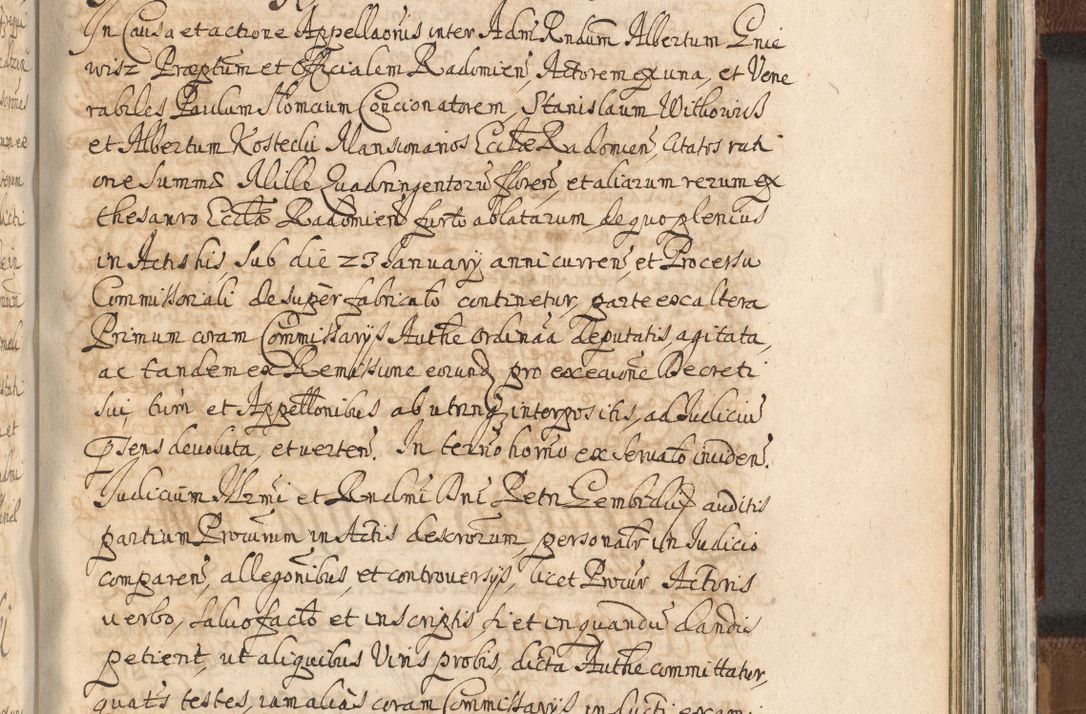 In Causa et actione Appellaonis inter Adm Rndum Albertum Gnie
wisz Præptum et Officialem Radomien, Actorem ex una, et Vene
rabiles Paulum Slomcium Concionatorem, Stanislaum Withowicz
et Albertum Kostecki Mansionarios Ecclæ Radomien, Citatos rati
one Summæ Mille Quadringentorū floren, et aliarum rerum ex
thesauro Ecclæ Radomien furto ablatarum, de quo plenius
in Actis his, sub die 23 Januarij anni curren, et Processu
Commissoriali desuper fabricato continetur, parte ex altera
Primum coram Commissarijs Authe ordinaa deputatis agitata,
ac tandem ex Remissione eorund pro execuone Decreti
sui, tum et Appellonibus ab utrinq interpositis, ad Judiciū
Psens devoluta, et verten. In terno horno ex servato inviden.
Judicium Illmi et Rndmi Dni Petri Gembicki auditis
partium Procurum in Actis descriorum, personalr in Judicio
comparen, allegonibus, et controversijs, licet Procur Actoris
verbo, salvo facto et in scriptis, si et in quandū dandis
petient, ut aliquibus Viris probis, dicta Authe committatur,
quats testes, iam alias coram Commissarijs inducti exami